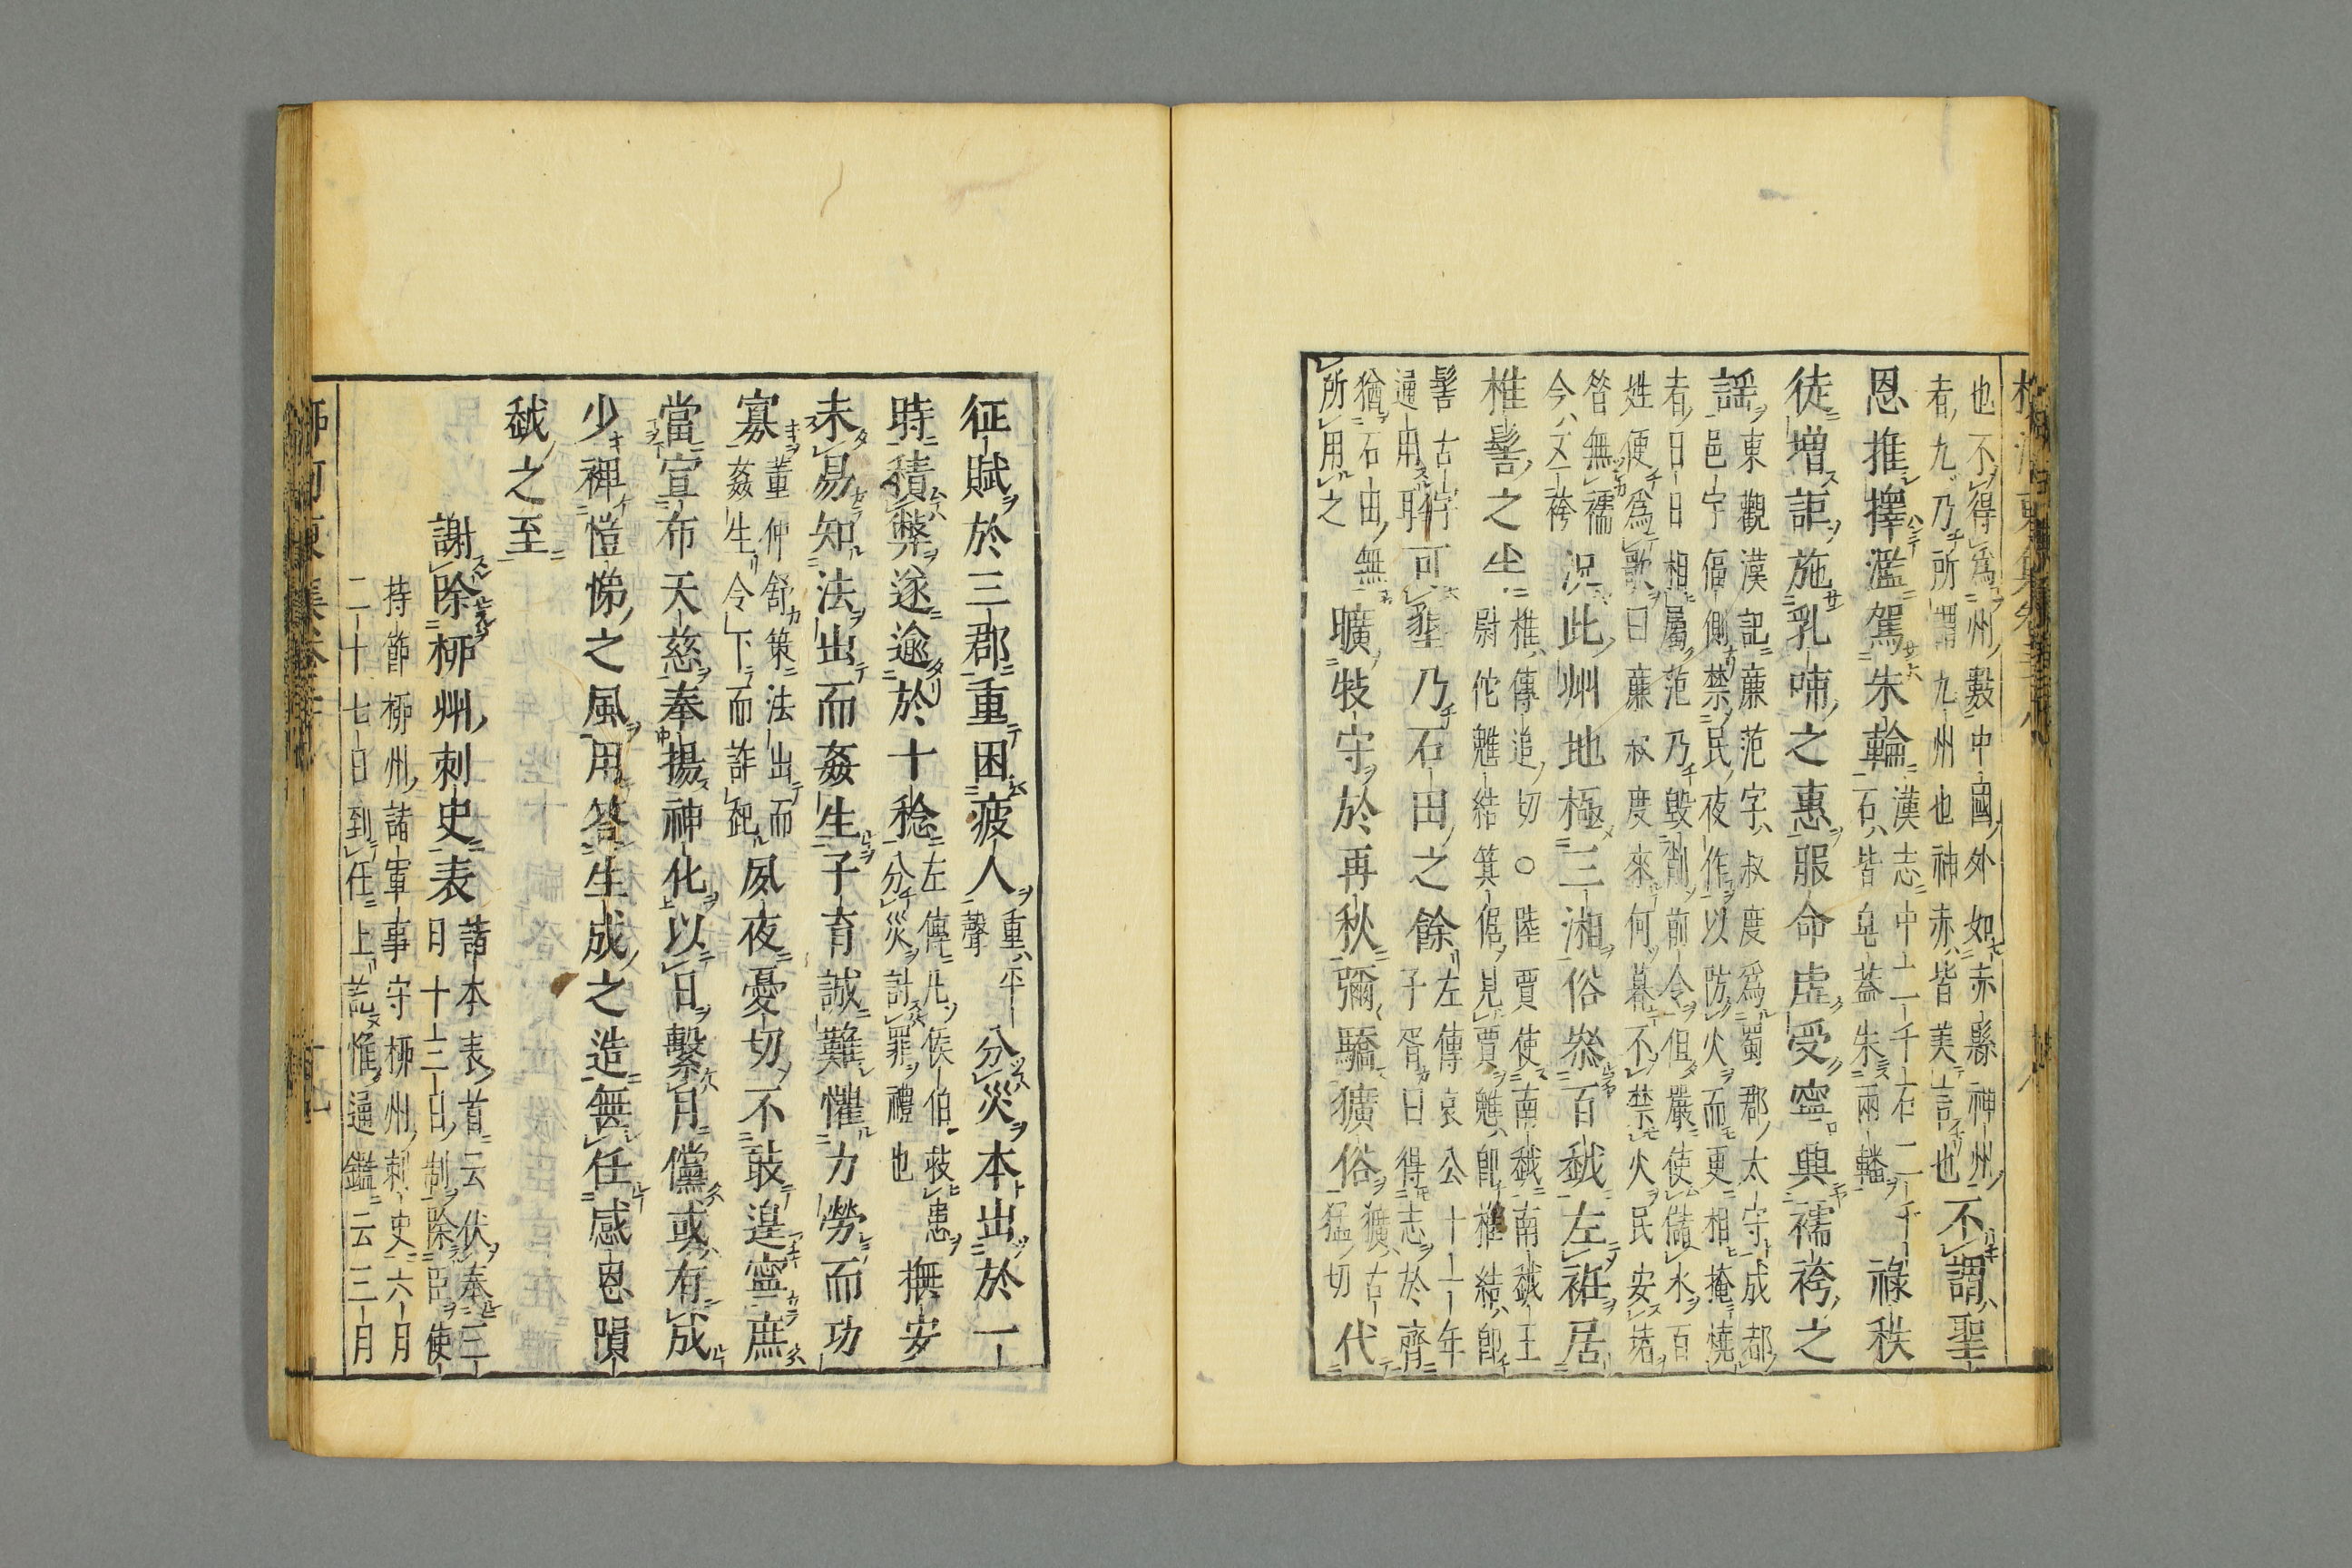 也不得爲州數中國外如赤縣神州
者九乃所謂九州也神赤皆美言也
不謂聖
恩推擇濫駕朱輪
漢志中二千石二千
石皆皂蓋朱兩轓
祿秩
徒增詎施乳哺之惠服命虛受寧興襦袴之
謠
東觀漢記廉范字叔度爲蜀郡太守成都
邑宇偪側禁民夜作以防火而更相掩燒
者日日相屬范乃毀削前令但嚴使儲水百
姓便爲歌曰廉叔度來何暮不禁火民安堵
昝無襦
今五袴
況此州地極三湘俗叅百越左衽居
椎髻之半
椎傳追切○陸賈使南越南越王
尉佗魋結箕倨見賈魋卽椎結卽
髻古字
通用耳
可墾乃石田之餘
左傳哀公十一年
子胥曰得志於齊
猶石田無
所用之
曠牧守於再秋彌驕獷俗
獷古
猛切
代
征賦於三郡重困疲人
重平
聲
分災本出於一
時積弊遂逾於十稔
左傳凡侯伯救患
分災討罪禮也
撫安
未易知法出而姦生子育誠難懼力勞而功
寡
董仲舒策法出而
姦生令下而詐起
夙夜憂切不敢遑寧庶
當宣布天慈奉揚神化以日繫月儻或有成
少裨愷悌之風用答生成之造無任感恩隕
越之至
謝除柳州刺史表
諸本表首云伏奉三
月十三日制除臣使
持節柳州諸軍事守柳州刺史六月
二十七日到任上訖惟通鑑云三月
柳河東集卷